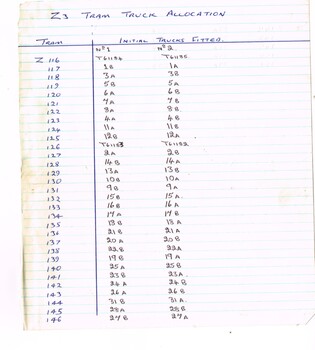 Z3 TRAM TRUCK ALLOCATION
TRAM INITIAL TRUCKS FITTED.
Nº1 Nº2
Z 116
117 1B 1A
118 3A 3B
119 5B 5A
120 6A 6B
121 7A 7B
122 8A 8B
123 4A 4B
124 11A 11B
125 12B 12A
126 T61153 T61152
127 2A 2B
128 14B 14A
129 13A 13B
130 10B 10A
131 9B 9A
132 15B 15A
133 16B 16A
134 17A 17B
135 18B 18A
136 21B 21A
137 20A 20B
138 22B 22A
139 19B 19A
140 25A 25B
141 23B 23A
142 24A 24B
143 26A 26B
144 31B 31A
145 28A 28B
146 27B 27A